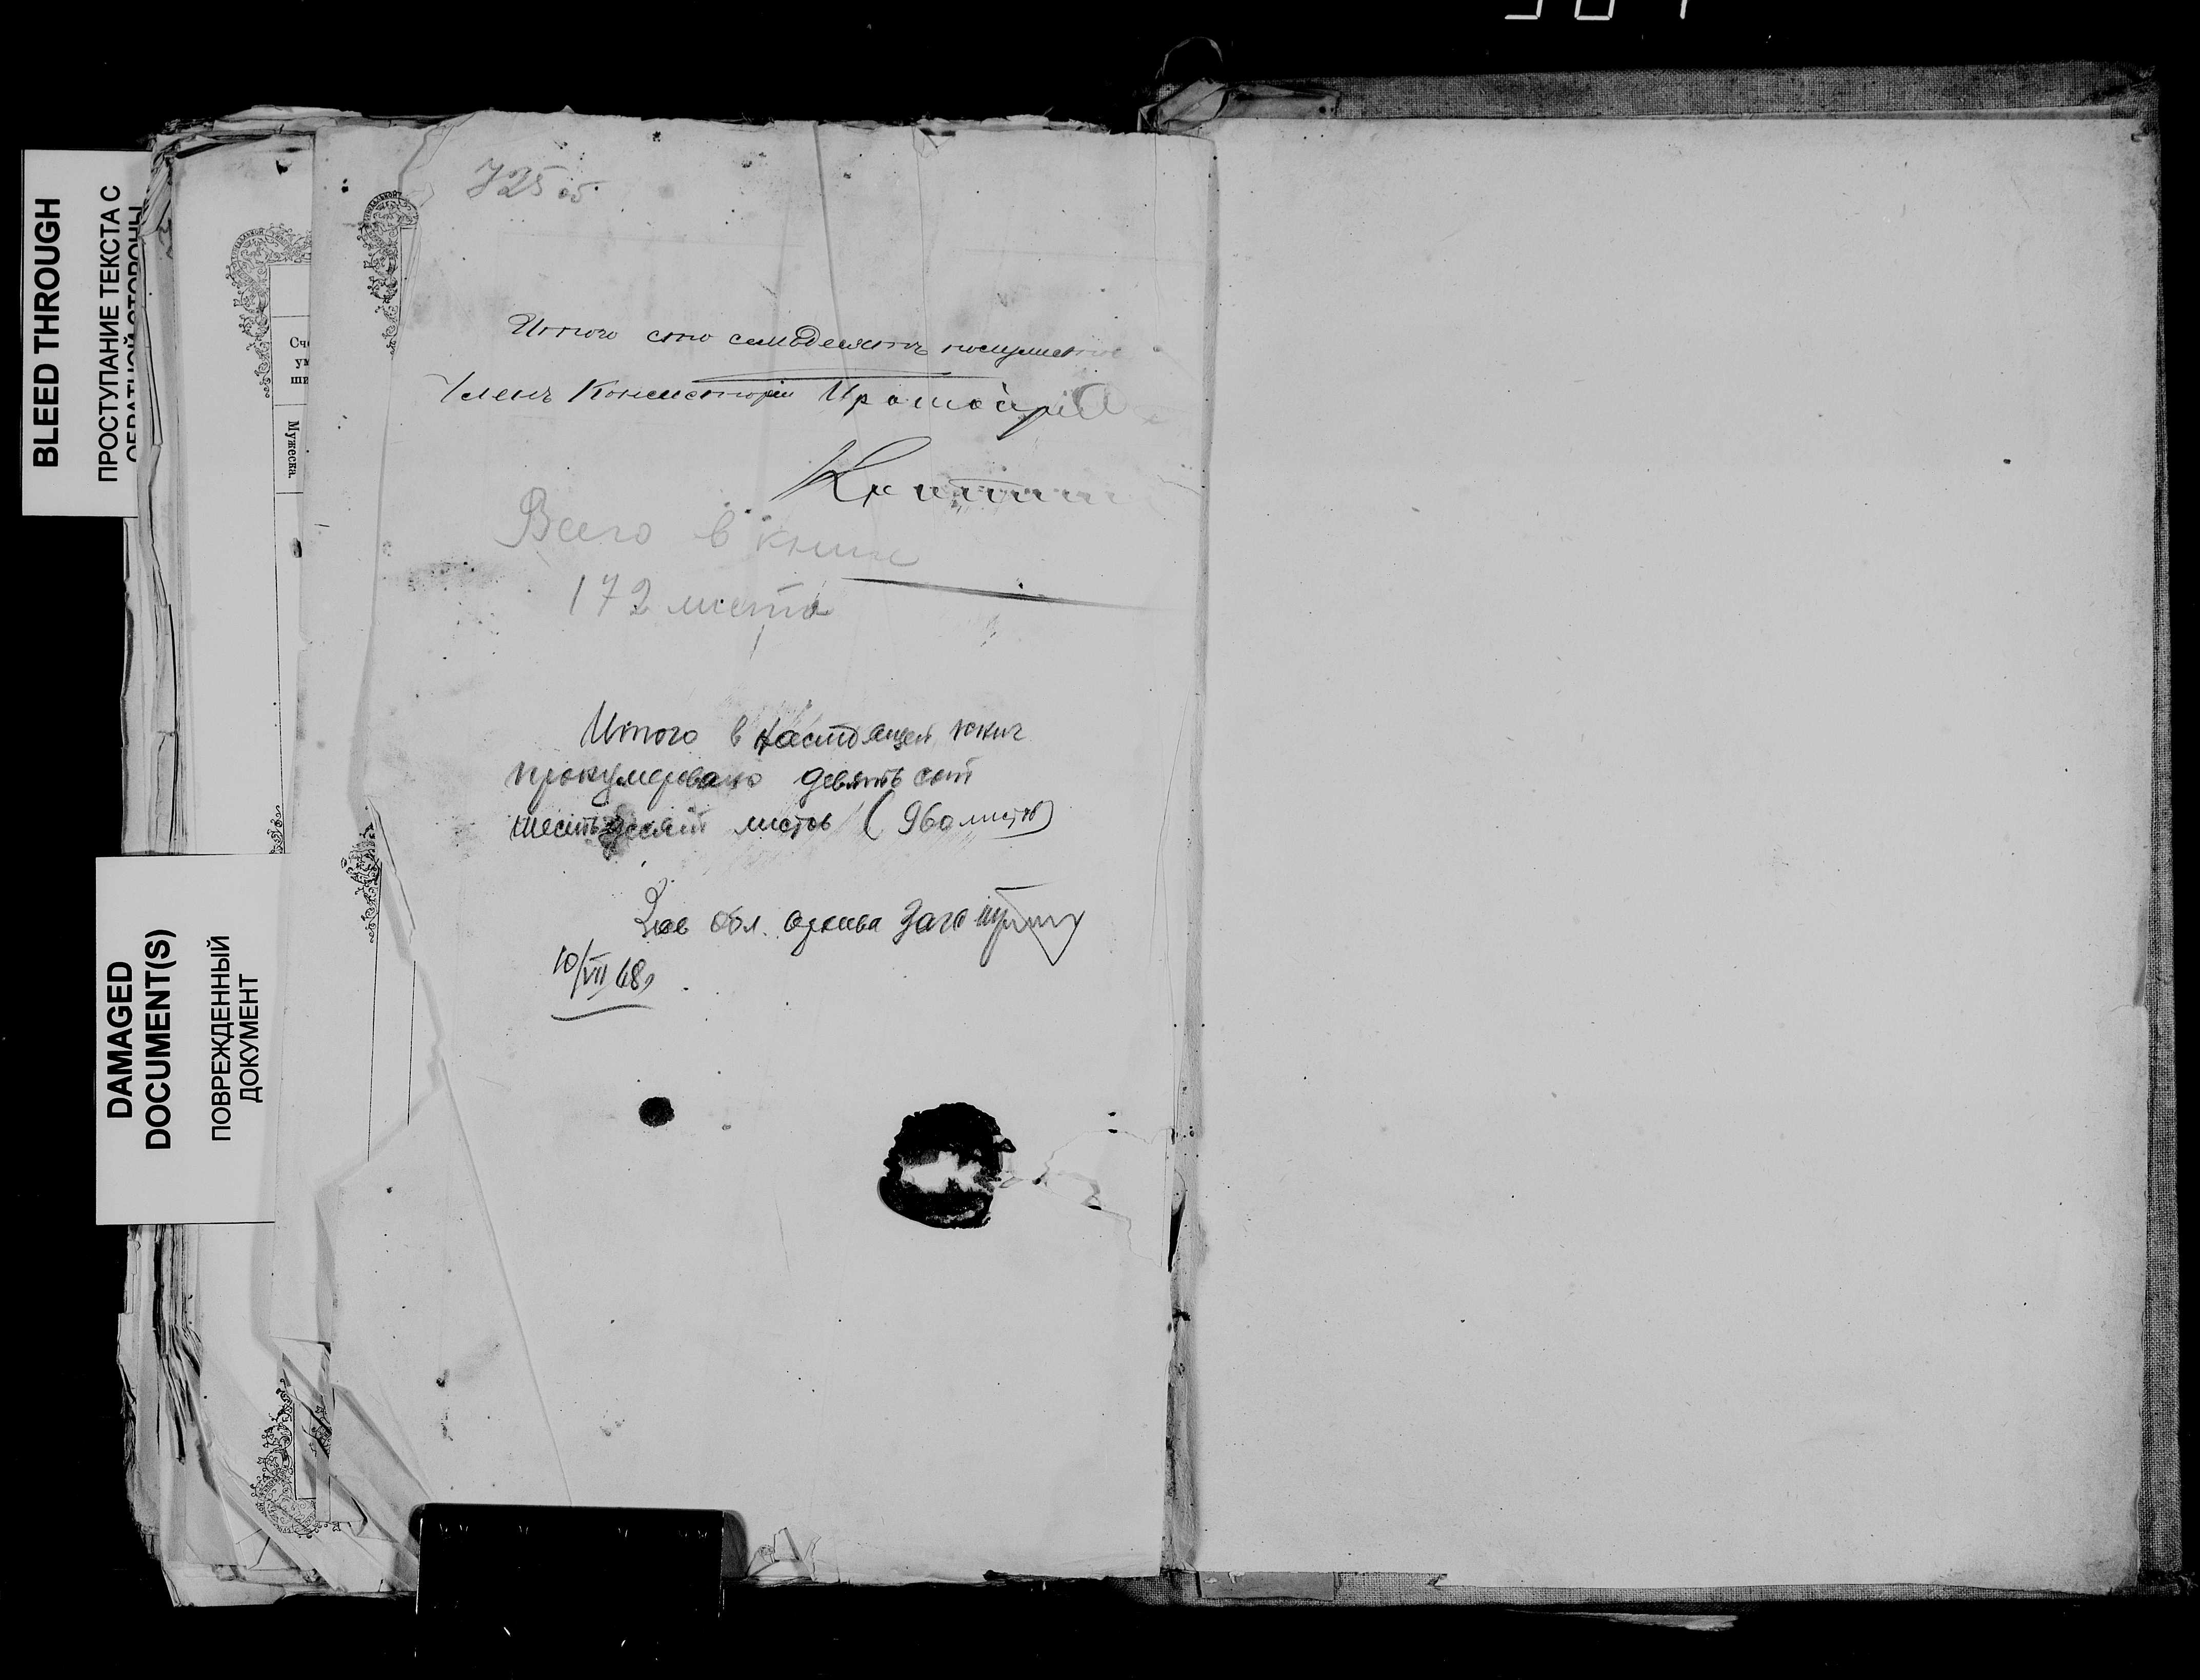 BLEED THROUGH
ПРОСТУПАНИЕ ТЕКСТА С
ОБРАТНОЙ СТОРОНЫ
DAMAGED
DOCUMENT(S)
ПОВРЕЖДЕННЫЙ
ДОКУМЕНТ
Мужеска.
725 об
Итого сто семьдесять
Членъ Консисторіи Протоіерей
Всего в книге
172 листа
Итого в настоящей книге
пронумеровано девятьсот
шестьдесят листов (960 листов)
Зав обл. архива
10/VII 68г